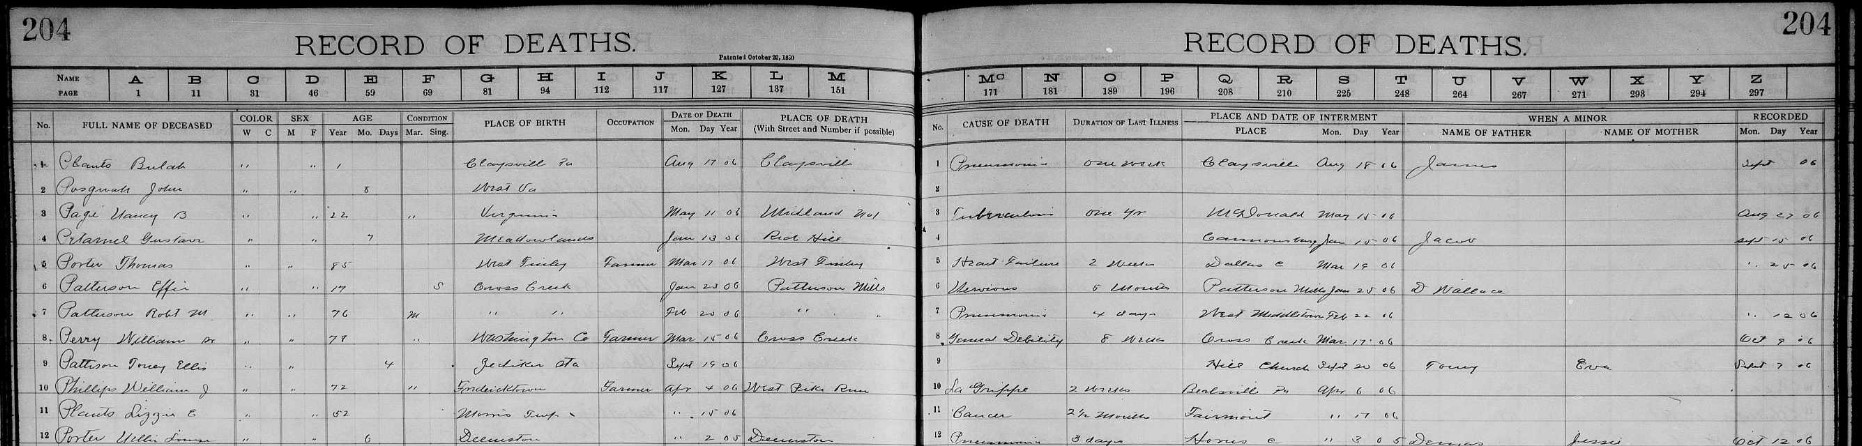 204 204
RECORD OF DEATHS. RECORD OF DEATHS.
Patented October 20, 1891
NAME A B C D E F G H I J K L M Mc N O P Q R S T U V W X Y Z
PAGE 1 11 31 46 59 69 81 94 112 117 127 137 151 171 181 189 196 208 210 225 248 264 267 271 293 294 297
No. FULL NAME OF DECEASED COLOR SEX AGE CONDITION PLACE OF BIRTH OCCUPATION DATE OF DEATH PLACE OF DEATH No. CAUSE OF DEATH DURATION OF LAST ILLNESS PLACE AND DATE OF INTERMENT WHEN A MINOR RECORDED
W C M F Year Mo. Days Mar. Sing. Mon. Day Year (With Street and Number if possible) PLACE Mon. Day Year NAME OF FATHER NAME OF MOTHER Mon. Day Year
1 Plants Bulah " " 1 Claysville Pa Aug 17 06 Claysville 1 Pneumonia one week Claysville Aug 18 06 James Sept 06
2 Pasquah John " " 8 West Va 2
3 Page Nancy B " " 22 " Virginia May 11 06 Midland 3 Tuberculosis one yr McDonald May 06 Aug 27 06
4 Gustavr " " 7 Meadowlands Jan 13 06 Rich Hill 4 Canonsburg Jan 15 06 Jacob Sept 15 06
5 Porter Thomas " " 85 West Finley Farmer Mar 17 06 West Finley 5 Heart Failure 2 Weeks Dallas C Mar 19 06 " 25 06
6 Patterson Effie " " 17 S Cross Creek Jan 23 06 Patterson Mills 6 Nervious Months Patterson Mills Jan 25 06 D Wallace
7 Patterson Robt M " " 76 M " " Feb 20 06 " " 7 Pneumonia 4 days West Middletown Feb 22 06 " 12 06
8 Perry William " " 77 " Washington Co Farmer Mar 15 06 Cross Creek 8 General Debility 8 Weeks Cross Creek Mar 17 06 Oct 9 06
9 Pattison Toney Ellis " " 4 Sept 19 06 9 Hill Church Sept 20 06 Tony Eva Sept 7 06
10 Phillips William J " " 72 " Fredericktown Farmer Apr 4 06 West Pike Run 10 La Grippe 2 Weeks Bealsville Pa Apr 6 06
11 Plants Lizzie C " " 52 Morris Twp " 15 06 11 Cancer 2½ Months Fairmont " 17 06
12 Porter " " 6 Deemston " 2 05 Deemston 12 Pneumonia 3 days Horns C " 3 05 Dennas Jessie Oct 12 06